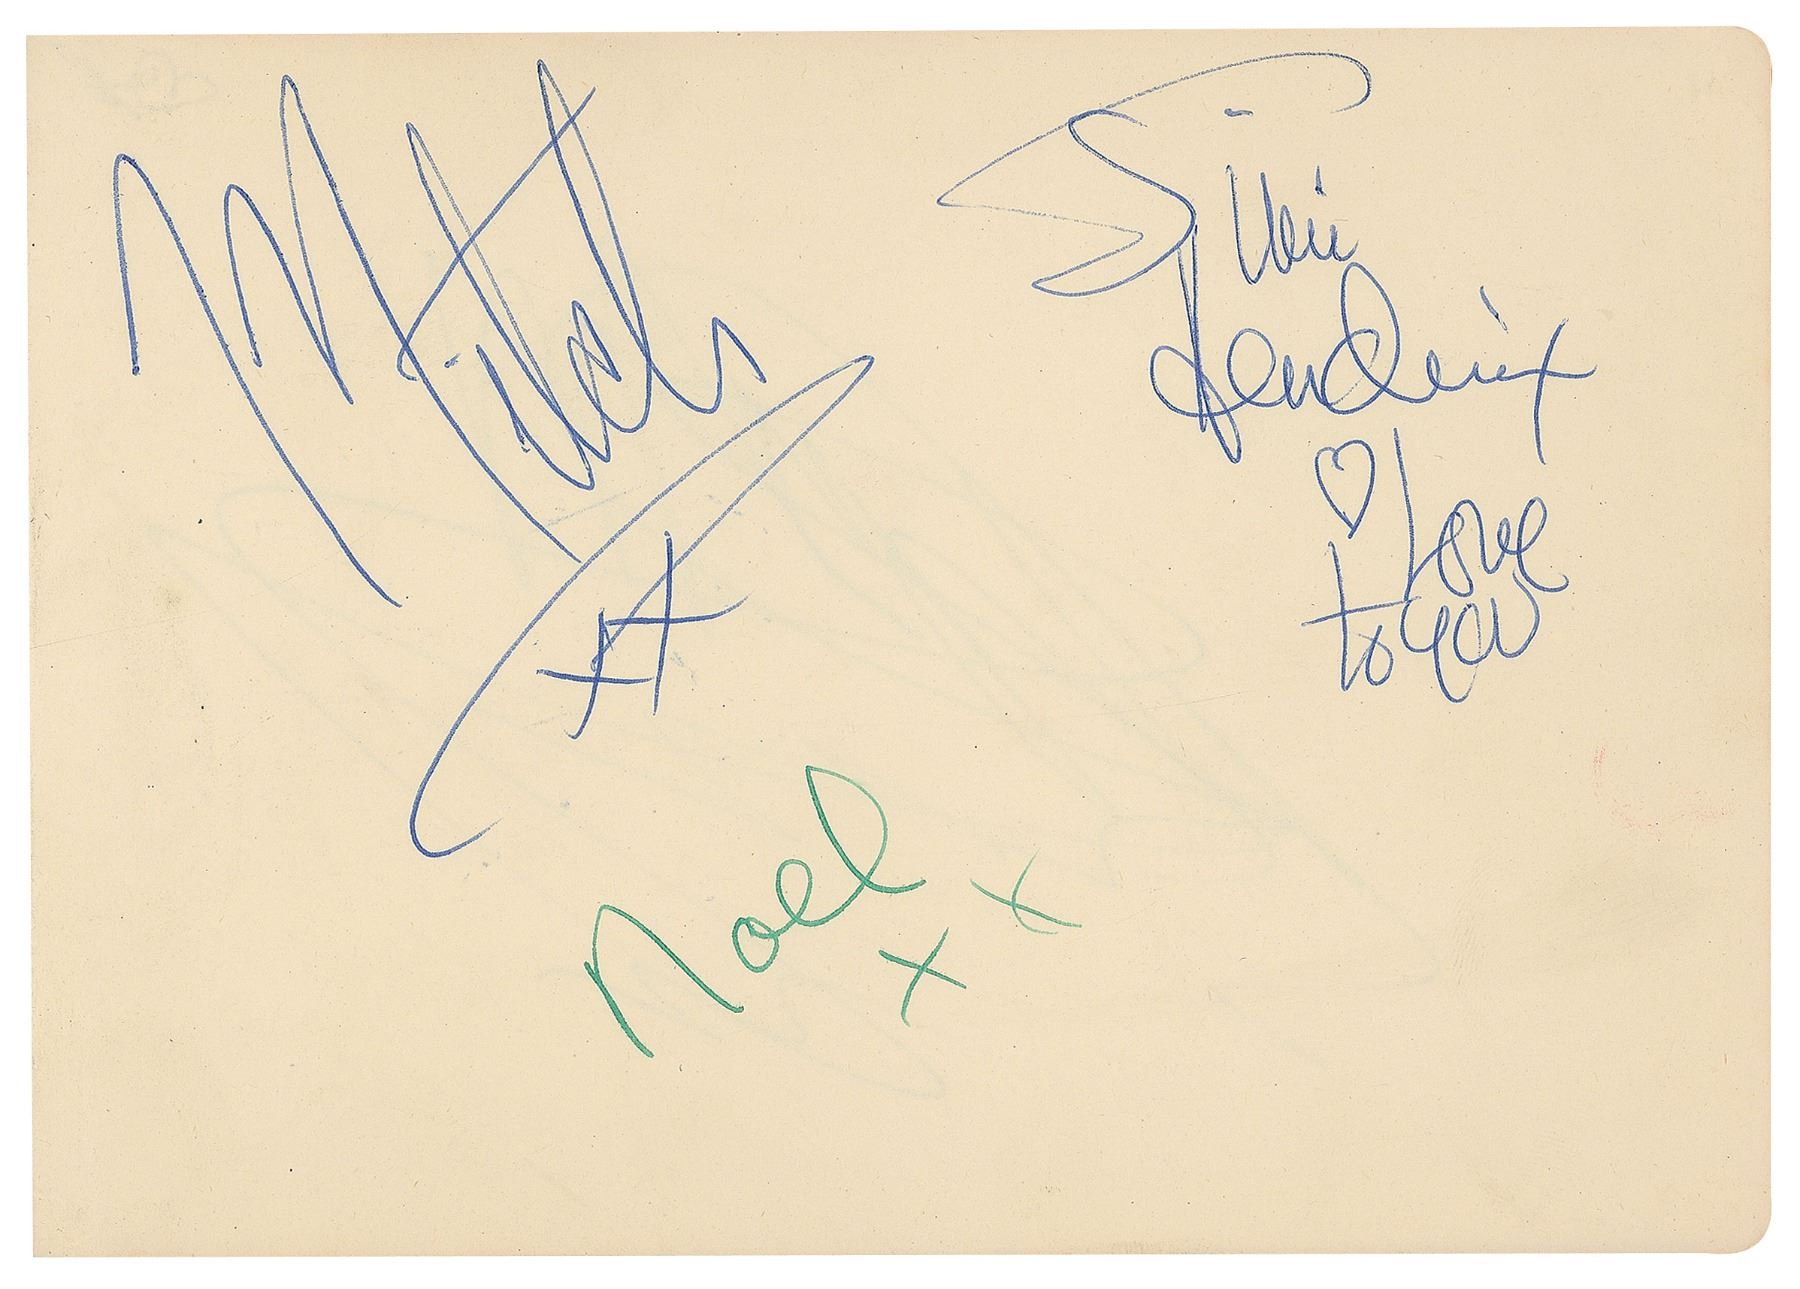 Mitch
xx
Jimi
Hendrix
♡ Love
to you
Noel
x x